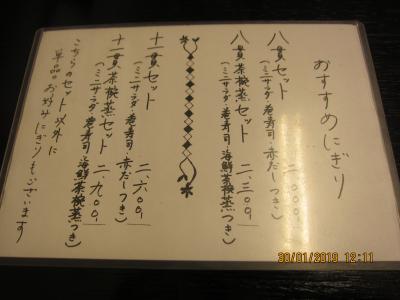 おすすめにぎり
八貫セット 二、000、
(ミニサラダ・巻寿司・赤だしつき)
八貫茶碗蒸セット 二、三00、
(ミニサラダ・巻寿司・海鮮茶碗蒸つき)
十一貫セット 二、六00、
(ミニサラダ・巻寿司・赤だしつき)
十一貫茶碗蒸セット 二、九00、
(ミニサラダ・巻寿司・海鮮茶碗蒸つき)
こちらのセット以外に
単品お好みにぎりもございます
30/01/2019 12:11